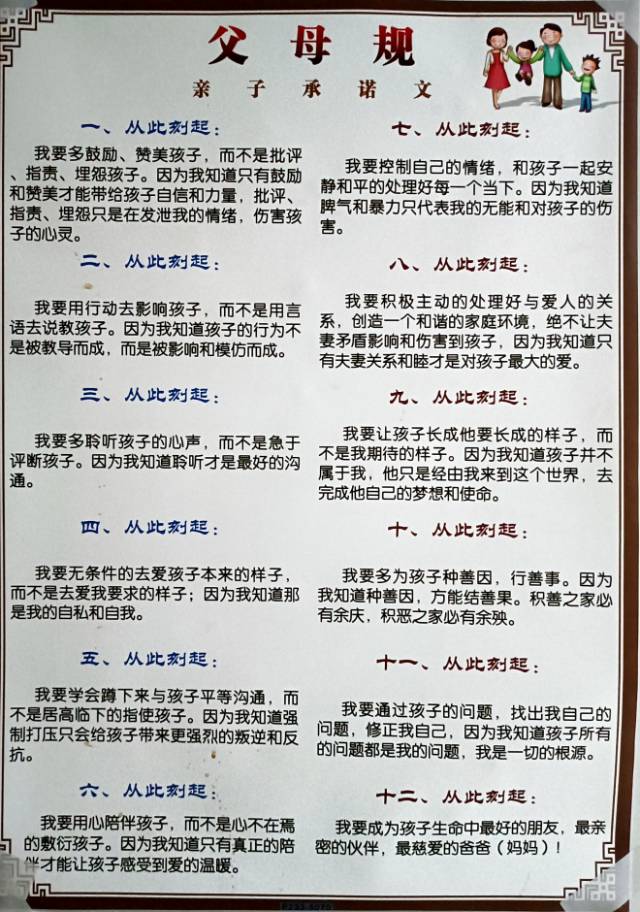 父母规
亲子承诺文
一、从此刻起：
我要多鼓励、赞美孩子，而不是批评
、指责、埋怨孩子。因为我知道只有鼓励
和赞美才能带给孩子自信和力量，批评、
指责、埋怨只是在发泄我的情绪，伤害孩
子的心灵。
二、从此刻起：
我要用行动去影响孩子，而不是用言
语去说教孩子。因为我知道孩子的行为不
是被教导而成，而是被影响和模仿而成。
三、从此刻起：
我要多聆听孩子的心声，而不是急于
评断孩子。因为我知道聆听才是最好的沟
通。
四、从此刻起：
我要无条件的去爱孩子本来的样子，
而不是去爱我要求的样子；因为我知道那
是我的自私和自我。
五、从此刻起：
我要学会蹲下来与孩子平等沟通，而
不是居高临下的指使孩子。因为我知道强
制打压只会给孩子带来更强烈的叛逆和反
抗。
六、从此刻起：
我要用心陪伴孩子，而不是心不在焉
的敷衍孩子。因为我知道只有真正的陪
伴才能让孩子感受到爱的温暖。
七、从此刻起：
我要控制自己的情绪，和孩子一起安
静和平的处理好每一个当下。因为我知道
脾气和暴力只代表我的无能和对孩子的伤
害。
八、从此刻起：
我要积极主动的处理好与爱人的关
系，创造一个和谐的家庭环境，绝不让夫
妻矛盾影响和伤害到孩子，因为我知道只
有夫妻关系和睦才是对孩子最大的爱。
九、从此刻起：
我要让孩子长成他要长成的样子，而
不是我期待的样子。因为我知道孩子并不
属于我，他只是经由我来到这个世界，去
完成他自己的梦想和使命。
十、从此刻起：
我要多为孩子种善因，行善事。因为
我知道种善因，方能结善果。积善之家必
有余庆，积恶之家必有余殃。
十一、从此刻起：
我要通过孩子的问题，找出我自己的
问题，修正我自己，因为我知道孩子所有
的问题都是我的问题，我是一切的根源。
十二、从此刻起：
我要成为孩子生命中最好的朋友，最亲
密的伙伴，最慈爱的爸爸（妈妈）！